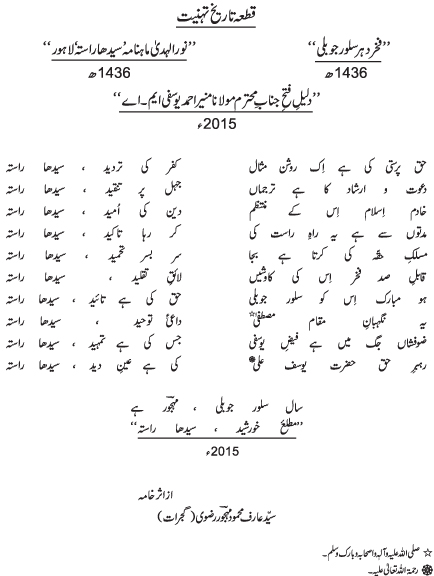 قطعہ تاریخ تہنیت
’’فخر دہر سلور جوبلی‘‘ ’’نور الہدیٰ ماہنامہ سیدھا راستہ لاہور‘‘
1436ھ 1436ھ
’’دلیلِ فتح جناب محترم مولانا منیر احمد یوسفی ایم۔اے‘‘
2015ء
حق پرستی کی ہے اِک روشن مثال کفر کی تردید ، سیدھا راستہ
دعوت و ارشاد کا ہے ترجماں جہل پر تنقید ، سیدھا راستہ
خادمِ اسلام اِس کے منتظم دین کی اُمید ، سیدھا راستہ
مدتوں سے ہے یہ راہِ راست کی کر رہا تاکید ، سیدھا راستہ
مسلکِ حقہ کی کرتا ہے بجا سر بسر تحمید ، سیدھا راستہ
قابلِ صد فخر اِس کی کاوشیں لائقِ تقلید ، سیدھا راستہ
ہو مبارک اِس کو سلور جوبلی حق کی ہے تائید ، سیدھا راستہ
یہ نگہبانِ مقامِ مصطفیٰ☆ داعیٔ توحید ، سیدھا راستہ
ضوفشاں جگ میں ہے فیضِ یوسفی جس کی ہے تمہید ، سیدھا راستہ
رہبرِ حق حضرت یوسف علی کی ہے عینِ دید ، سیدھا راستہ
سال سلور جوبلی ، مہجور ہے
’’مطلعِ خورشید ، سیدھا راستہ‘‘
2015ء
از اثر خامہ
سیّد عارف محمود مہجور رضوی (گجرات)
☆ صلی اللہ علیہ وآلہٖ واصحابہٖ وبارک وسلم۔
رحمۃ اللہ تعالیٰ علیہ۔